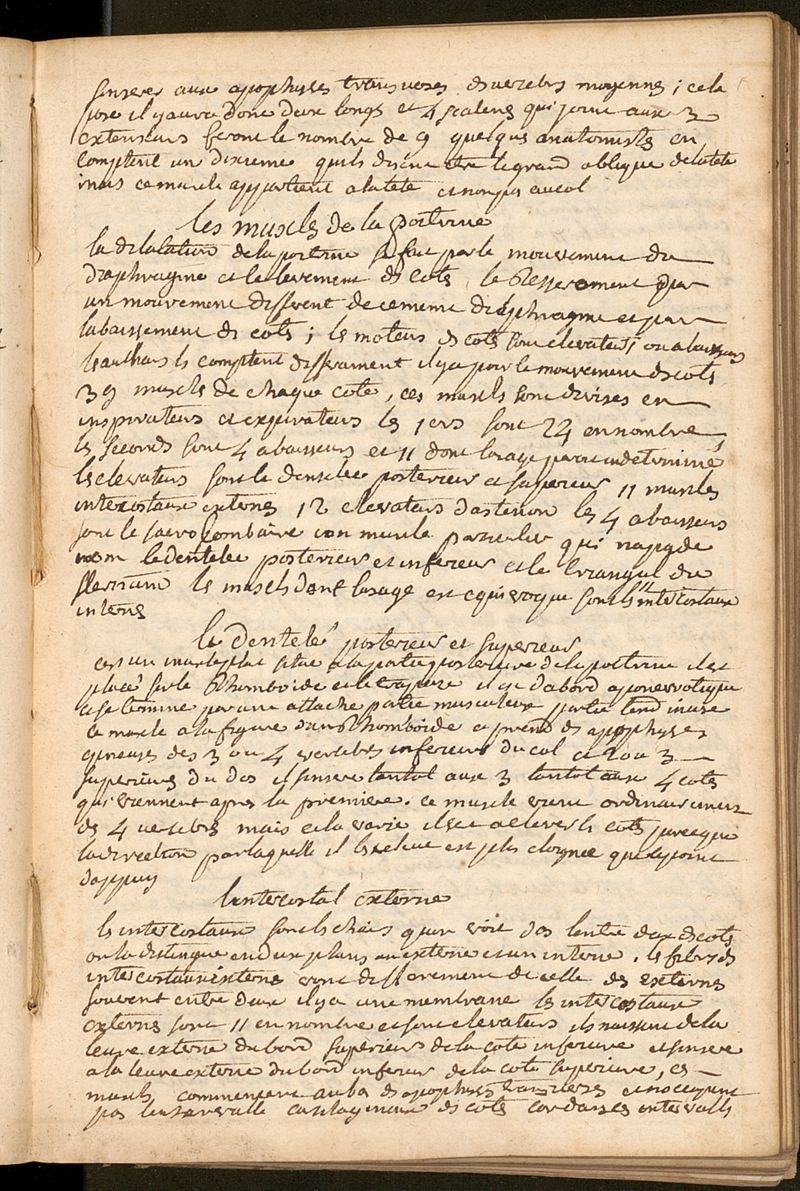 sinserer aux apophyses transverses des vertebrs moyennes ; cela
pose il y aura donc deux longs et 4 scalens qui joint aux 3
extenseurs feront le nombre de 9 quelqus anatomists en
comptent un dixieme quils disent etre le grand oblique de la tete
mais ce muscle appartient a la tete et non pas au col
les muscls de la poitrine
la dilatation de la poitrine se fait par le mouvement du
diaphragme et le levement ds cots, le resserement par
un mouvement different de ce meme diaphragme et par
labaissement ds cots ; ls moteurs ds cots sont elevateurs ou abaisseurs
ls authurs ls comptent differament il y a pour le mouvement ds cots
39 muscls de chaque cote, ces muscls sont divises en
inspirateurs et expirateurs ls 1ers sont 24 en nombre
ls seconds sont 4 abaisseurs et 11 dont lusage parait indeterminé
ls elevateurs sont le dentelee posterieur et superieur 11 muscles
intercostaux externes 12 elevateurs ls 4 abaisseurs
sont le sacro lombaire un muscle particulier qui na pas de
nom le dentelee posterieur et inferieur et le triangul du
sternum ls muscls dont lusage est equivoque sont ls 11 intercostaux
interns
le dentelé posterieur et superieur
cest un muscle plat situe a la partie posterieure de la poitrine il est
placé sur le rhomboide et le trapeze il est dabord aponevrotique
et se termine par une attache partie musculeux partie tendineuse
ce muscle a la figure dun rhomboide et prend ds apophyses
epineuses des 3 ou 4 vertebrs inferieurs du col et 2 ou 3
superieurs du dos il sinsere tantot aux 3 tantot aux 4 cots
qui viennent apres la premiere. ce muscle vient ordinairement
ds 4 vertebrs mais cela varie il sert a elever ls cots parce que
la direction par laquelle il ls eleve est plus eloignee que le point
dappuy
lintercostal externe
ls intercostaux sont ls chairs quon voit dans lentre deux ds cots
on la distingue en deux plans un externe et un interne. ls fibrs ds
intercostaux interns vont differement de celle des externs
souvent entre deux il y a une membrane ls intercostaux
externs sont 11 en nombre et sont elevateurs ils naissent de la
levre externe du bord superieur de la cote inferieure et sinsere
a la levre externe du bord inferieur de la cote superieure, ces
muscls commencent au bas ds apophyses transverses et noccupent
pas lintervalle cartilagineux ds cots car dans ces intervalls